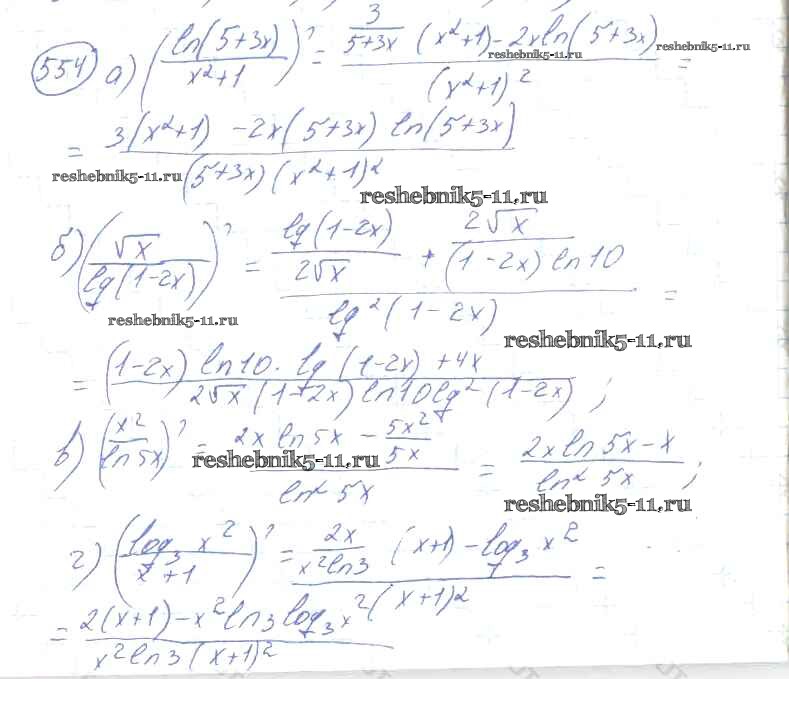 554 а) (ln(5+3x) / x²+1)' = 3/(5+3x) (x²+1) - 2x ln(5+3x) / (x²+1)² =
reshebnik5-11.ru
reshebnik5-11.ru
= 3(x²+1) - 2x(5+3x) ln(5+3x) / (5+3x)(x²+1)²
reshebnik5-11.ru
reshebnik5-11.ru
б) (√x / lg(1-2x))' = lg(1-2x)/2√x + 2√x/(1-2x) ln10 / lg²(1-2x) =
reshebnik5-11.ru
reshebnik5-11.ru
= (1-2x) ln10 · lg(1-2x) + 4x / 2√x (1-2x) ln10 lg²(1-2x) ;
в) (x² / ln5x)' = 2x ln5x - 5x²/5x / ln² 5x = 2x ln5x - x / ln² 5x ;
reshebnik5-11.ru
reshebnik5-11.ru
г) (log₃ x² / x+1)' = 2x/x² ln3 (x+1) - log₃ x² / (x+1)² =
= 2(x+1) - x² ln3 log₃ x² / x² ln3 (x+1)²